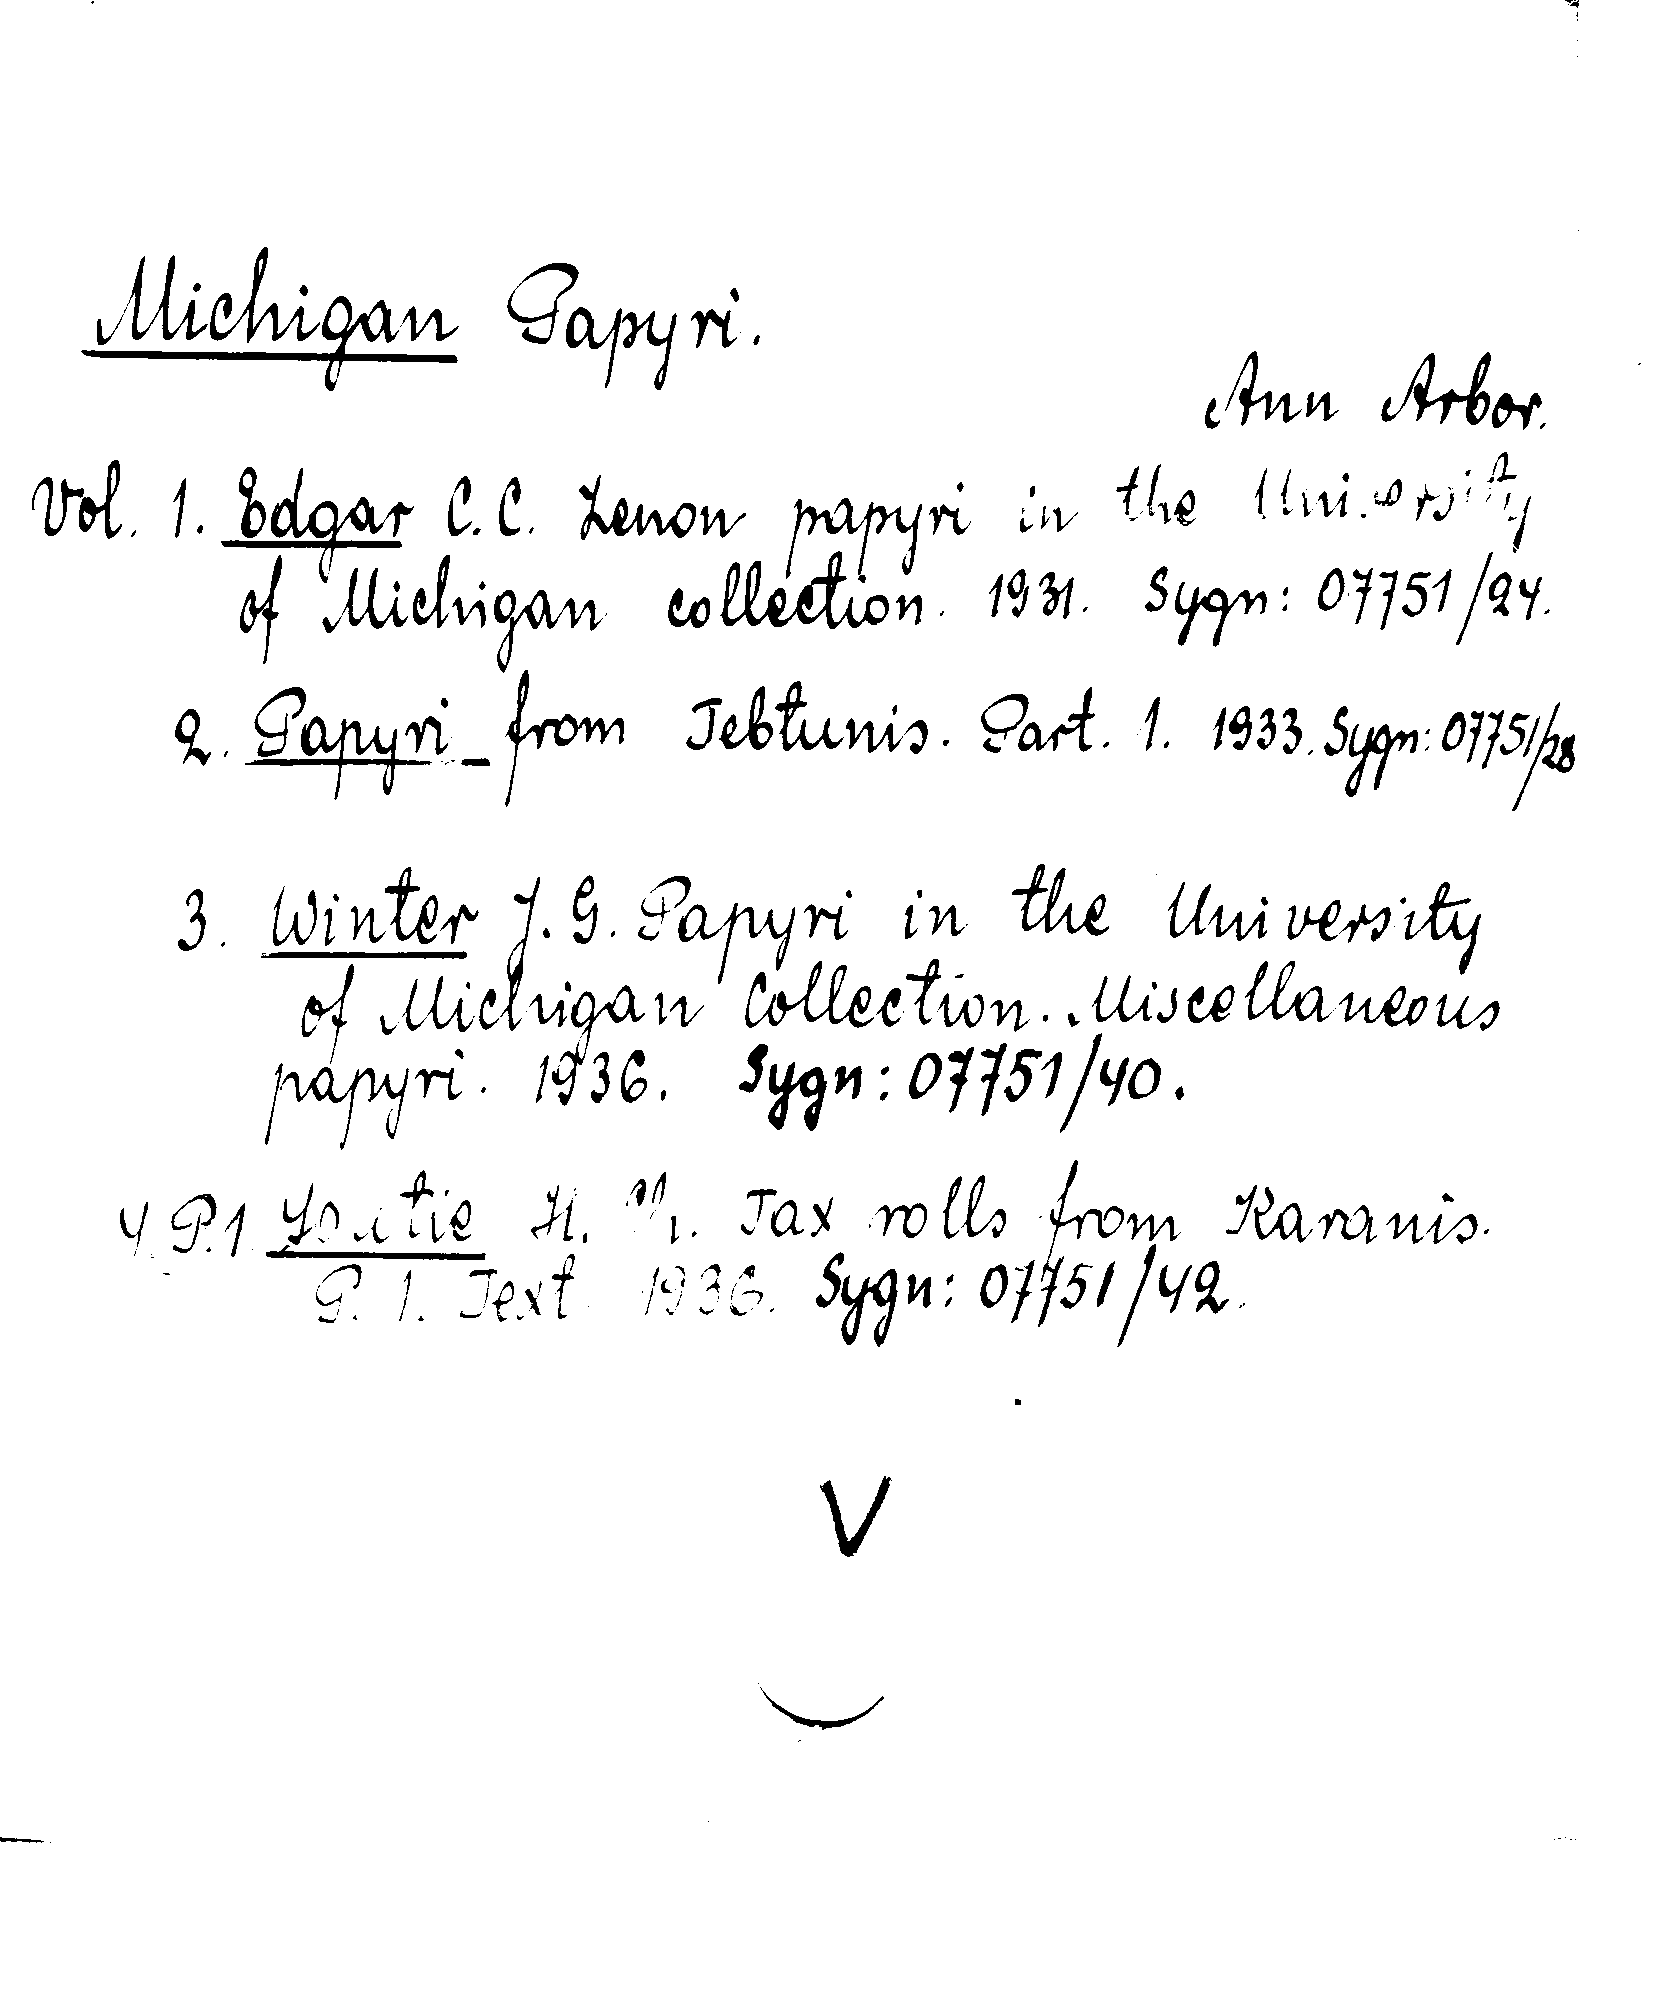 Michigan Papyri.
Ann Arbor.
Vol. 1. Edgar C.C. Zenon papyri in the University
of Michigan collection. 1931. Sygn: 07751/24.
2. Papyri from Tebtunis. Part. 1. 1933. Sygn: 07751/28
3. Winter J.G. Papyri in the University
of Michigan Collection. Miscellaneous
papyri. 1936. Sygn: 07751/40.
4. P.1 Youtie H. Tax rolls from Karanis.
P. 1. Text. 1936. Sygn: 07751/42.
V